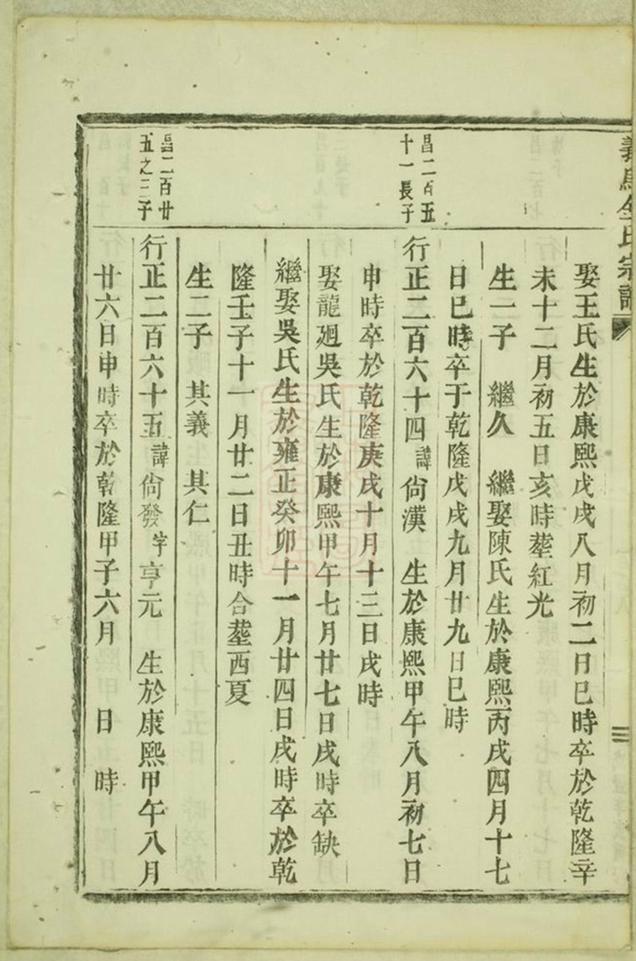 義烏金氏宗譜
娶王氏生於康熙戊戌八月初二日巳時卒於乾隆辛
未十二月初五日亥時塟紅光
生一子　繼久　繼娶陳氏生於康熙丙戌四月十七
日巳時卒于乾隆戊戌九月廿九日巳時
昌二百五
十一長子
行正二百六十四諱尙漢　生於康熙甲午八月初七日
申時卒於乾隆庚戌十月十三日戌時
娶龍廻吳氏生於康熙甲午七月廿七日戌時卒缺
繼娶吳氏生於雍正癸卯十一月廿四日戌時卒於乾
隆壬子十一月廿二日丑時合塟西夏
生二子　其義　其仁
昌二百廿
五之三子
行正二百六十五諱尙發字亨元　生於康熙甲午八月
廿六日申時卒於乾隆甲子六月　日　時